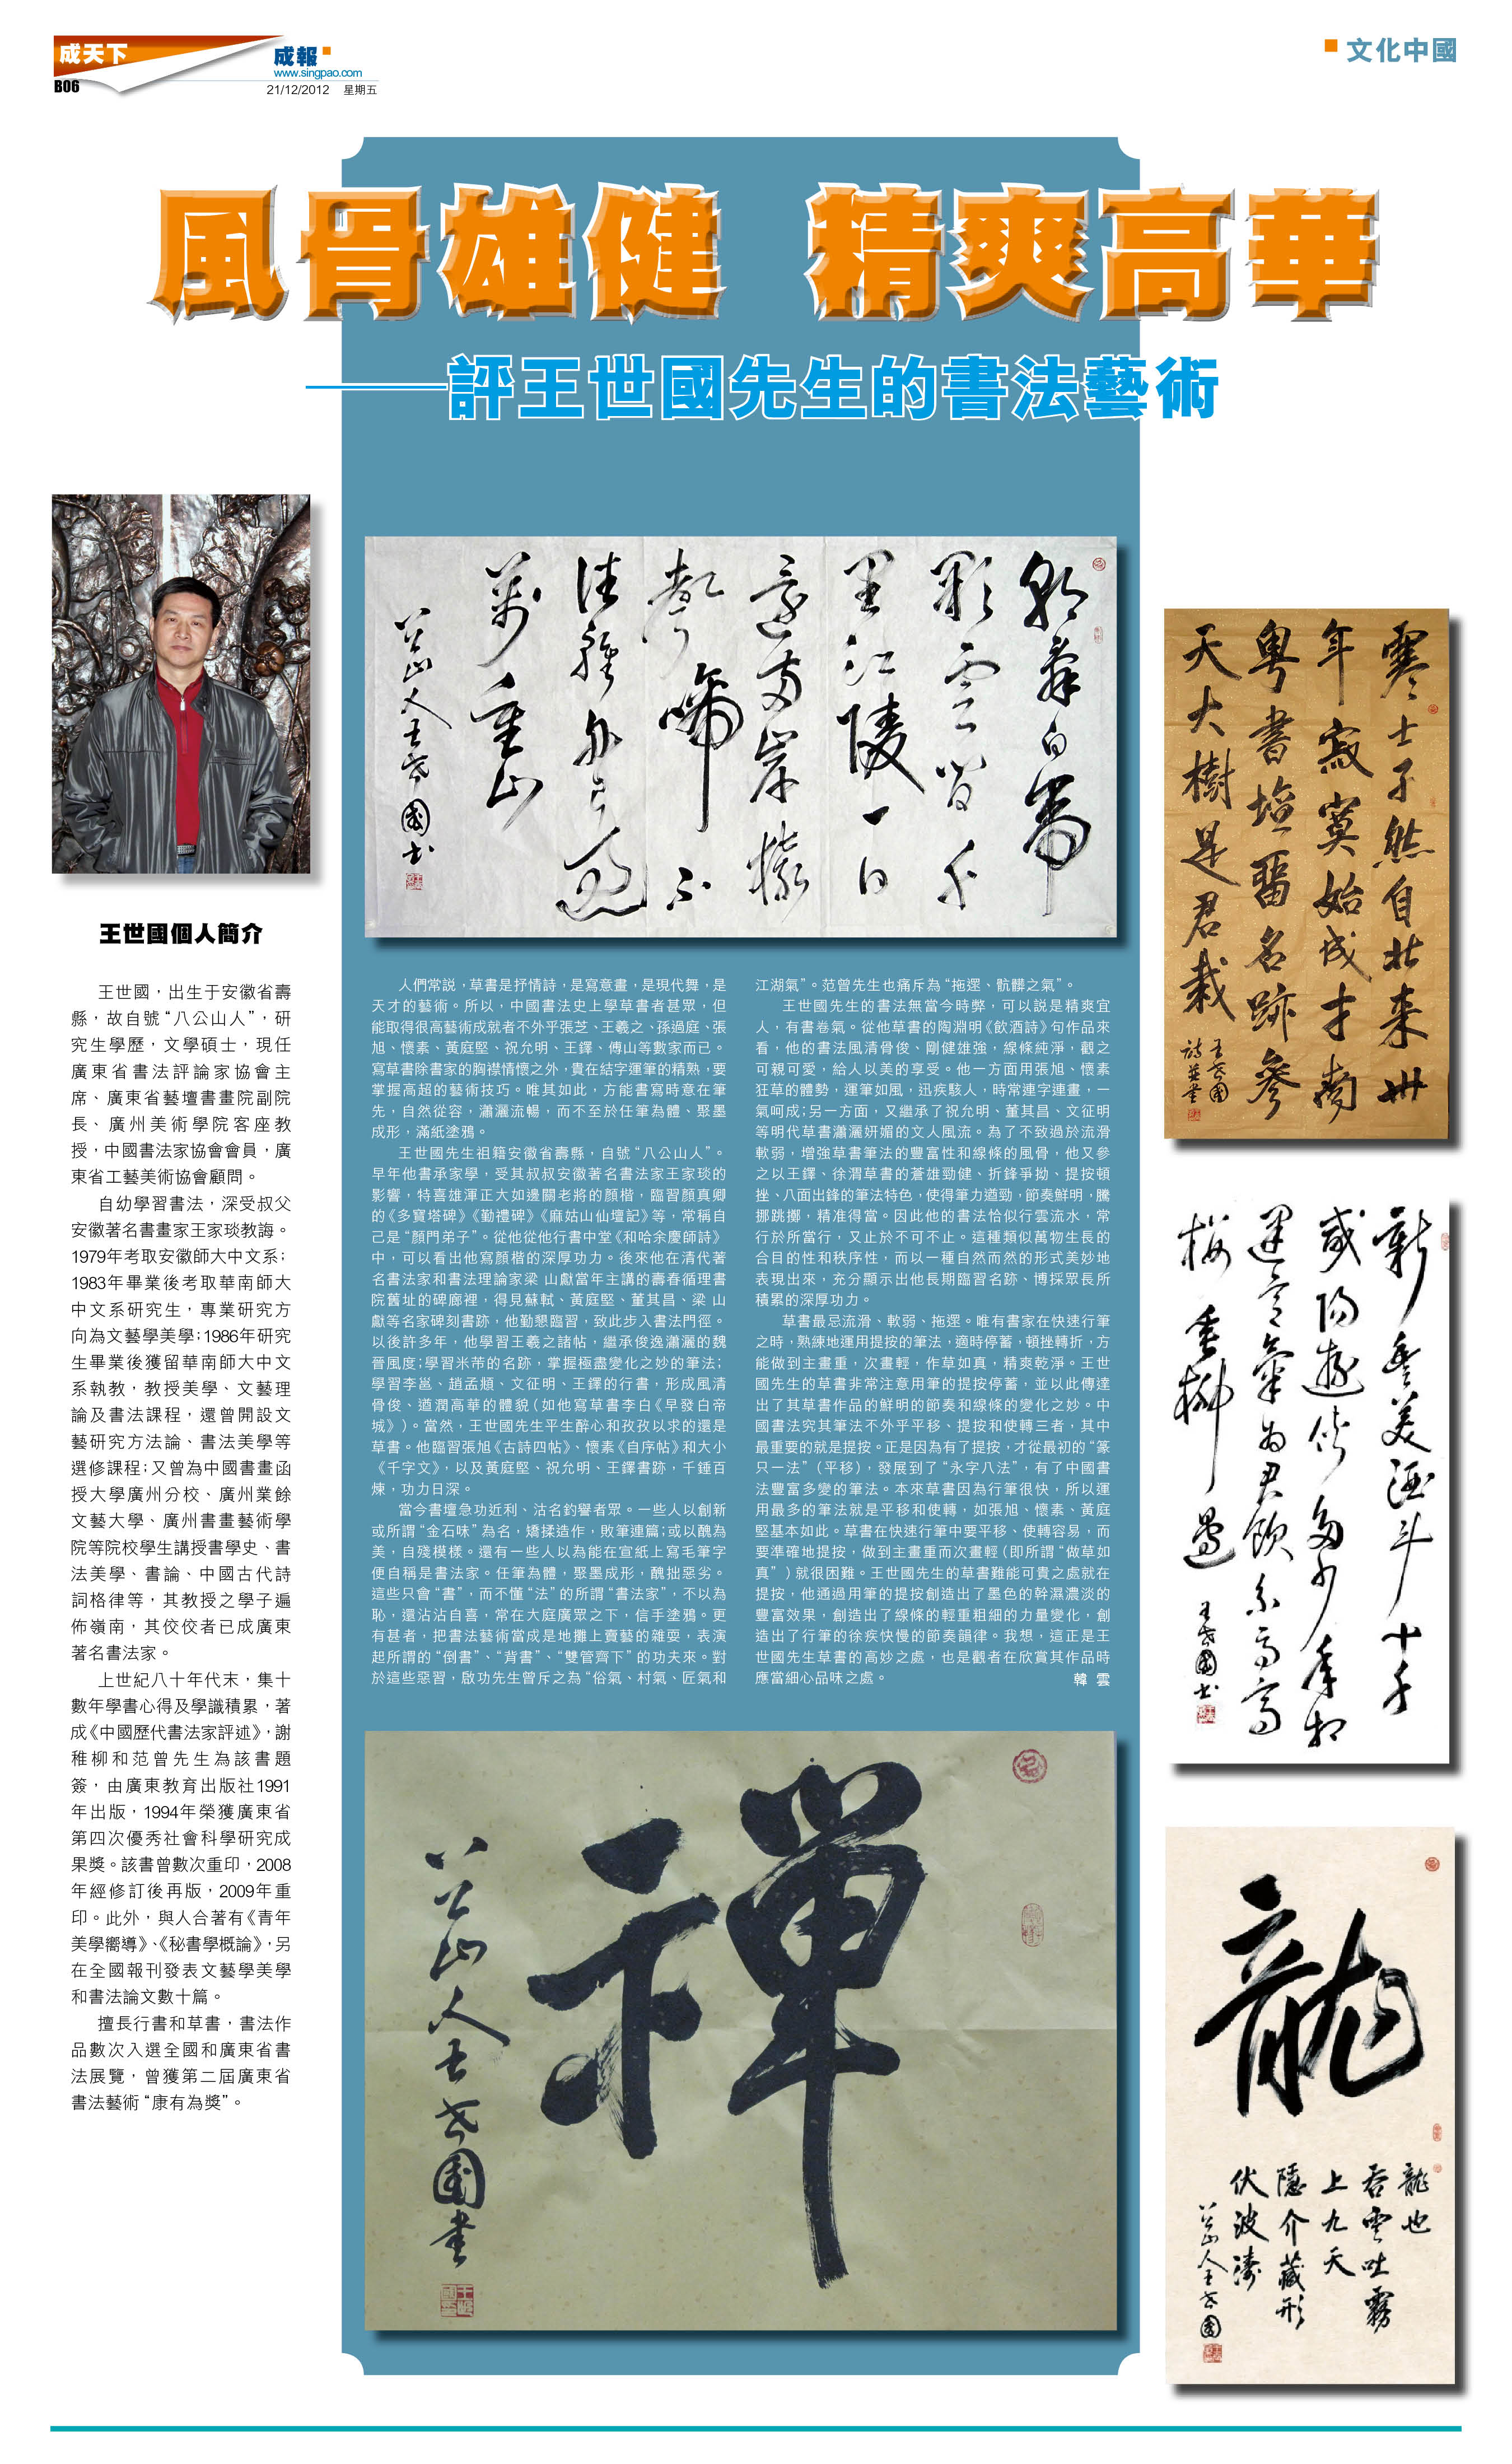 成天下
B06
成報
www.singpao.com
21/12/2012 星期五
文化中國
風骨雄健 精爽高華
——評王世國先生的書法藝術
王世國個人簡介
王世國，出生于安徽省壽
縣，故自號“八公山人”，研
究生學歷，文學碩士，現任
廣東省書法評論家協會主
席、廣東省藝壇書畫院副院
長、廣州美術學院客座教
授，中國書法家協會會員，廣
東省工藝美術協會顧問。
自幼學習書法，深受叔父
安徽著名書畫家王家琰教誨。
1979年考取安徽師大中文系；
1983年畢業後考取華南師大
中文系研究生，專業研究方
向為文藝學美學；1986年研究
生畢業後獲留華南師大中文
系執教，教授美學、文藝理
論及書法課程，還曾開設文
藝研究方法論、書法美學等
選修課程；又曾為中國書畫函
授大學廣州分校、廣州業餘
文藝大學、廣州書畫藝術學
院等院校學生講授書學史、書
法美學、書論、中國古代詩
詞格律等，其教授之學子遍
佈嶺南，其佼佼者已成廣東
著名書法家。
上世紀八十年代末，集十
數年學書心得及學識積累，著
成《中國歷代書法家評述》，謝
稚柳和范曾先生為該書題
簽，由廣東教育出版社1991
年出版，1994年榮獲廣東省
第四次優秀社會科學研究成
果獎。該書曾數次重印，2008
年經修訂後再版，2009年重
印。此外，與人合著有《青年
美學嚮導》、《秘書學概論》，另
在全國報刊發表文藝學美學
和書法論文數十篇。
擅長行書和草書，書法作
品數次入選全國和廣東省書
法展覽，曾獲第二屆廣東省
書法藝術“康有為獎”。
朝辭白帝
彩雲間千
里江陵一日
還兩岸猿
聲啼不
住輕舟已過
萬重山
八公山人王世國書
人們常説，草書是抒情詩，是寫意畫，是現代舞，是
天才的藝術。所以，中國書法史上學草書者甚眾，但
能取得很高藝術成就者不外乎張芝、王羲之、孫過庭、張
旭、懷素、黃庭堅、祝允明、王鐸、傅山等數家而已。
寫草書除書家的胸襟情懷之外，貴在結字運筆的精熟，要
掌握高超的藝術技巧。唯其如此，方能書寫時意在筆
先，自然從容，瀟灑流暢，而不至於任筆為體、聚墨
成形，滿紙塗鴉。
王世國先生祖籍安徽省壽縣，自號“八公山人”。
早年他書承家學，受其叔叔安徽著名書法家王家琰的
影響，特喜雄渾正大如邊關老將的顏楷，臨習顏真卿
的《多寶塔碑》《勤禮碑》《麻姑山仙壇記》等，常稱自
己是“顏門弟子”。從他從他行書中堂《和哈余慶師詩》
中，可以看出他寫顏楷的深厚功力。後來他在清代著
名書法家和書法理論家梁 山獻當年主講的壽春循理書
院舊址的碑廊裡，得見蘇軾、黃庭堅、董其昌、梁 山
獻等名家碑刻書跡，他勤懇臨習，致此步入書法門徑。
以後許多年，他學習王羲之諸帖，繼承俊逸瀟灑的魏
晉風度；學習米芾的名跡，掌握極盡變化之妙的筆法；
學習李邕、趙孟頫、文征明、王鐸的行書，形成風清
骨俊、遒潤高華的體貌（如他寫草書李白《早發白帝
城》）。當然，王世國先生平生醉心和孜孜以求的還是
草書。他臨習張旭《古詩四帖》、懷素《自序帖》和大小
《千字文》，以及黃庭堅、祝允明、王鐸書跡，千錘百
煉，功力日深。
當今書壇急功近利、沽名釣譽者眾。一些人以創新
或所謂“金石味”為名，矯揉造作，敗筆連篇；或以醜為
美，自殘模樣。還有一些人以為能在宣紙上寫毛筆字
便自稱是書法家。任筆為體，聚墨成形，醜拙惡劣。
這些只會“書”，而不懂“法”的所謂“書法家”，不以為
恥，還沾沾自喜，常在大庭廣眾之下，信手塗鴉。更
有甚者，把書法藝術當成是地攤上賣藝的雜耍，表演
起所謂的“倒書”、“背書”、“雙管齊下”的功夫來。對
於這些惡習，啟功先生曾斥之為“俗氣、村氣、匠氣和
江湖氣”。范曾先生也痛斥為“拖遝、骯髒之氣”。
王世國先生的書法無當今時弊，可以説是精爽宜
人，有書卷氣。從他草書的陶淵明《飲酒詩》句作品來
看，他的書法風清骨俊、剛健雄強，線條純淨，觀之
可親可愛，給人以美的享受。他一方面用張旭、懷素
狂草的體勢，運筆如風，迅疾駭人，時常連字連畫，一
氣呵成；另一方面，又繼承了祝允明、董其昌、文征明
等明代草書瀟灑妍媚的文人風流。為了不致過於流滑
軟弱，增強草書筆法的豐富性和線條的風骨，他又參
之以王鐸、徐渭草書的蒼雄勁健、折鋒爭拗、提按頓
挫、八面出鋒的筆法特色，使得筆力遒勁，節奏鮮明，騰
挪跳擲，精准得當。因此他的書法恰似行雲流水，常
行於所當行，又止於不可不止。這種類似萬物生長的
合目的性和秩序性，而以一種自然而然的形式美妙地
表現出來，充分顯示出他長期臨習名跡、博採眾長所
積累的深厚功力。
草書最忌流滑、軟弱、拖遝。唯有書家在快速行筆
之時，熟練地運用提按的筆法，適時停蓄，頓挫轉折，方
能做到主畫重，次畫輕，作草如真，精爽乾淨。王世
國先生的草書非常注意用筆的提按停蓄，並以此傳達
出了其草書作品的鮮明的節奏和線條的變化之妙。中
國書法究其筆法不外乎平移、提按和使轉三者，其中
最重要的就是提按。正是因為有了提按，才從最初的“篆
只一法”（平移），發展到了“永字八法”，有了中國書
法豐富多變的筆法。本來草書因為行筆很快，所以運
用最多的筆法就是平移和使轉，如張旭、懷素、黃庭
堅基本如此。草書在快速行筆中要平移、使轉容易，而
要準確地提按，做到主畫重而次畫輕（即所謂“做草如
真”）就很困難。王世國先生的草書難能可貴之處就在
提按，他通過用筆的提按創造出了墨色的幹濕濃淡的
豐富效果，創造出了線條的輕重粗細的力量變化，創
造出了行筆的徐疾快慢的節奏韻律。我想，這正是王
世國先生草書的高妙之處，也是觀者在欣賞其作品時
應當細心品味之處。
韓 雲
禪
八公山人王世國書
寒士孑然自北來卅
年寂寞始成才南
粵書壇留名跡參
天大樹是君栽
王世國
詩並書
新豐美酒斗十千
咸陽遊俠多少年相
逢意氣為君飲系馬高
樓垂柳邊
王世國書
龍
龍也
吞雲吐霧
上九天
隱介藏形
伏波濤
八公山人王世國